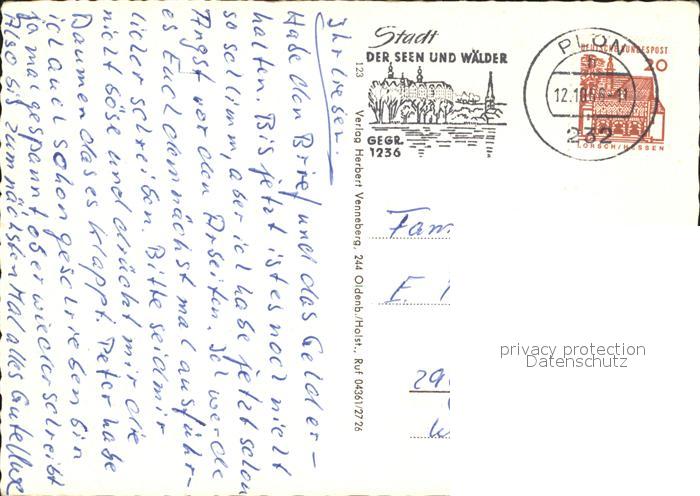 Ihr Lieben
Habe den Brief und das Geld er-
halten. Bis jetzt ist es noch nicht
so schlimm, aber ich habe jetzt schon
Angst vor den Arbeiten. Ich werde
es Euch demnächst mal ausführ-
licher schreiben. Bitte seid mir
nicht böse und drückt mir die
Daumen das es klappt. Peter habe
ich auch schon geschrieben bin
ja mal gespannt ob er wieder schreibt
Also bis zum nächsten Mal alles Gute
123 Verlag Herbert Venneberg, 244 Oldenb./Holst., Ruf 04361/2726
Stadt
DER SEEN UND WÄLDER
GEGR.
1236
PLÖN
12.10.66-11
232
DEUTSCHE BUNDESPOST
20
LORSCH/HESSEN
Fam.
E.
29
privacy protection
Datenschutz